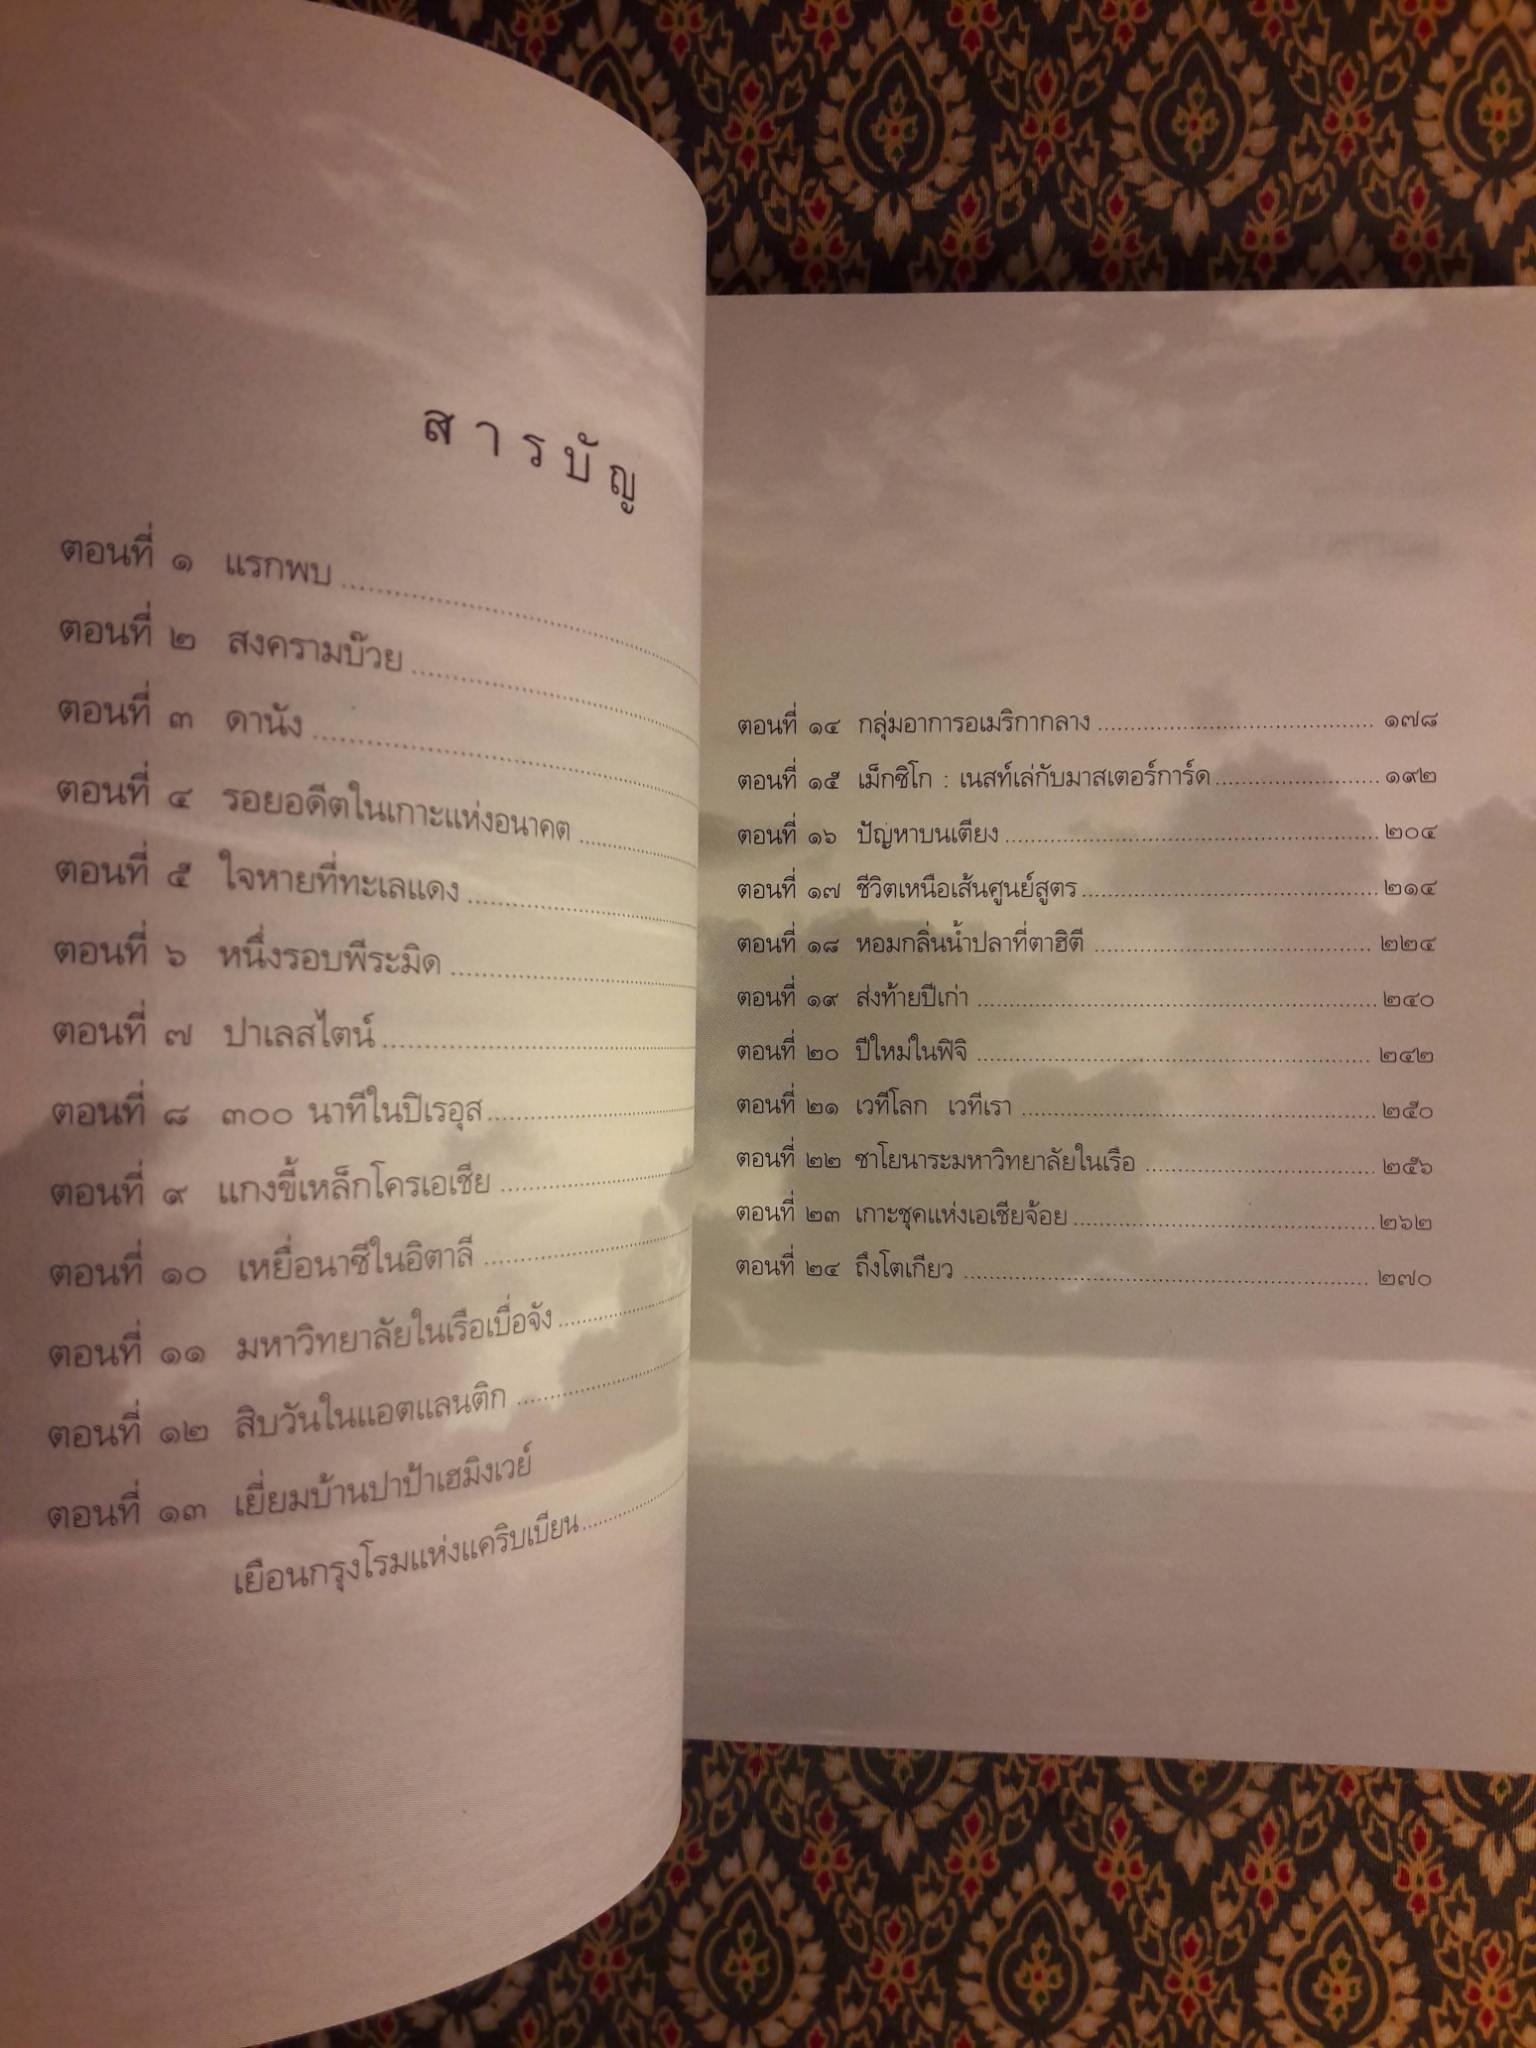 สารบัญ
ตอนที่ ๑ แรกพบ
ตอนที่ ๒ สงครามบ๊วย
ตอนที่ ๓ ดานัง
ตอนที่ ๔ รอยอดีตในเกาะแห่งอนาคต
ตอนที่ ๕ ใจหายที่ทะเลแดง
ตอนที่ ๖ หนึ่งรอบพีระมิด
ตอนที่ ๗ ปาเลสไตน์
ตอนที่ ๘ ๓๐๐ นาทีในปิเรอุส
ตอนที่ ๙ แกงขี้เหล็กโครเอเชีย
ตอนที่ ๑๐ เหยื่อนาซีในอิตาลี
ตอนที่ ๑๑ มหาวิทยาลัยในเรือเบื่อจัง
ตอนที่ ๑๒ สิบวันในแอตแลนติก
ตอนที่ ๑๓ เยี่ยมบ้านปาป้าเฮมิงเวย์
เยือนกรุงโรมแห่งแคริบเบียน
ตอนที่ ๑๔ กลุ่มอาการอเมริกากลาง ๑๗๘
ตอนที่ ๑๕ เม็กซิโก : เนสท์เล่กับมาสเตอร์การ์ด ๑๙๒
ตอนที่ ๑๖ ปัญหาบนเตียง ๒๐๔
ตอนที่ ๑๗ ชีวิตเหนือเส้นศูนย์สูตร ๒๑๔
ตอนที่ ๑๘ หอมกลิ่นน้ำปลาที่ตาฮิตี ๒๒๔
ตอนที่ ๑๙ ส่งท้ายปีเก่า ๒๔๐
ตอนที่ ๒๐ ปีใหม่ในฟิจิ ๒๔๒
ตอนที่ ๒๑ เวทีโลก เวทีเรา ๒๕๐
ตอนที่ ๒๒ ซาโยนาระมหาวิทยาลัยในเรือ ๒๕๖
ตอนที่ ๒๓ เกาะชุคแห่งเอเชียจ้อย ๒๖๒
ตอนที่ ๒๔ ถึงโตเกียว ๒๗๐